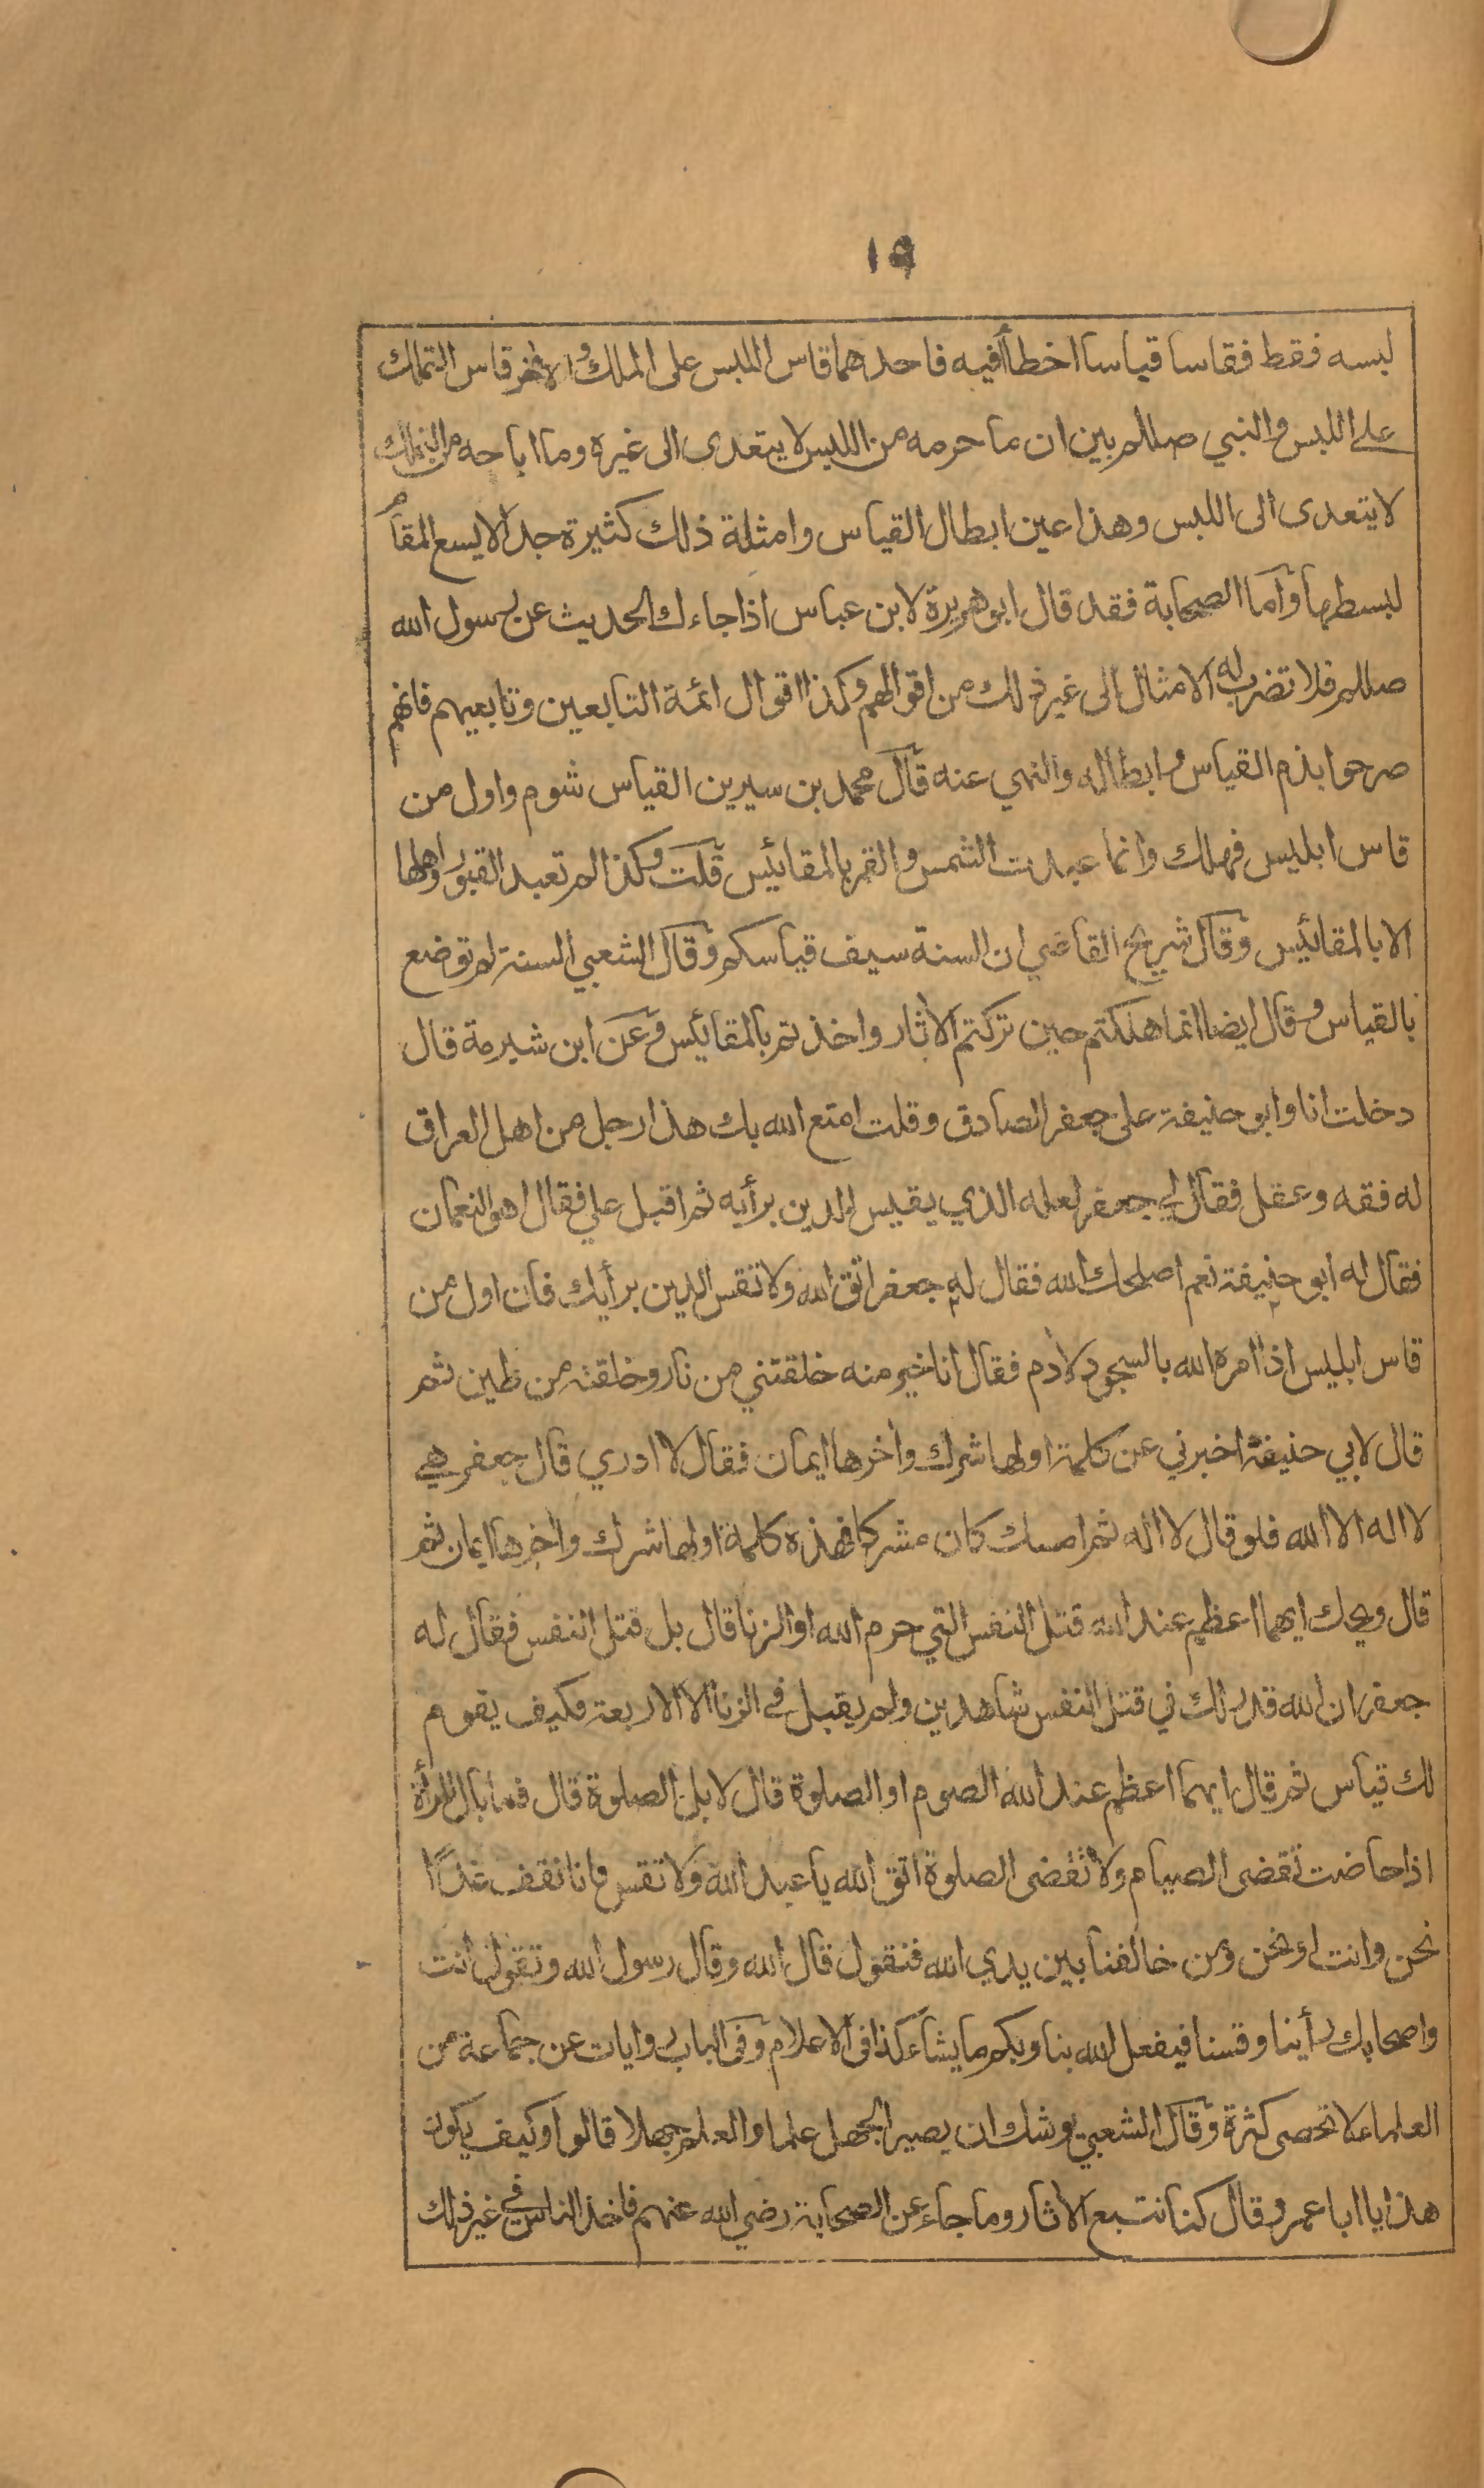 ١٩
لبسه فقط فقاسا قياسا اخطأ فيه فاحدهما قاس اللبس على الملك والاخر قاس التملك
على اللبس والنبي صللم بين ان ما حرمه من اللبس لا يتعدى الى غيره وما اباحه من التملك
لا يتعدى الى اللبس وهذا عين ابطال القياس وامثلة ذلك كثيرة جدا لا يسع المقام
لبسطها واما الصحابة فقد قال ابو هريرة لابن عباس اذا جاءك الحديث عن رسول الله
صللم فلا تضرب له الامثال الى غير ذلك من اقوالهم وكذا اقوال ائمة التابعين وتابعيهم فانهم
صرحوا بذم القياس وابطاله والنهي عنه قال محمد بن سيرين القياس شوم واول من
قاس ابليس فهلك وانما عبدت الشمس والقمر بالمقائيس قلت وكذا لم تعبد القبور واهلها
الا بالمقائيس وقال شريح القاضي ان السنة سيف قياسكم وقال الشعبي السنة لم توضع
بالقياس وقال ايضا انما هلكتم حين تركتم الاثار واخذتم بالمقائيس وعن ابن شبرمة قال
دخلت انا وابو حنيفة على جعفر الصادق وقلت امتع الله بك هذا رجل من اهل العراق
له فقه وعقل فقال لي جعفر لعله الذي يقيس الدين برأيه ثم اقبل علي فقال اهو النعمان
فقال له ابو حنيفة نعم اصلحك الله فقال له جعفر اتق الله ولا تقس الدين برأيك فان اول من
قاس ابليس اذا امره الله بالسجود لادم فقال انا خير منه خلقتني من نار وخلقته من طين ثم
قال لابي حنيفة اخبرني عن كلمة اولها شرك واخرها ايمان فقال لا ادري قال جعفر هي
لا اله الا الله فلو قال لا اله ثم امسك كان مشركا فهذه كلمة اولها شرك واخرها ايمان ثم
قال ويحك ايهما اعظم عند الله قتل النفس التي حرم الله او الزنا قال بل قتل النفس فقال له
جعفر ان الله قد لك في قتل النفس شاهدين ولم يقبل في الزنا الا الاربعة فكيف يقوم
لك قياس ثم قال ايهما اعظم عند الله الصوم او الصلوة قال لا بل الصلوة قال فما بال المرأة
اذا حاضت تقضى الصيام ولا تقضى الصلوة اتق الله يا عبد الله ولا تقس فانا نقف غدا
نحن وانت او نحن ومن خالفنا بين يدي الله فنقول قال الله وقال رسول الله وتقول انت
واصحابك رأينا وقسنا فيفعل الله بنا وبكم ما يشاء كذا في الاعلام وفي الباب روايات عن جماعة من
العلماء لا تحصى كثرة وقال الشعبي يوشك ان يصير الجهل علما والعلم جهلا قالوا وكيف يكون
هذا يا ابا عمرو قال كنا نتبع الاثار وما جاء عن الصحابة رضي الله عنهم فاخذ الناس في غير ذلك